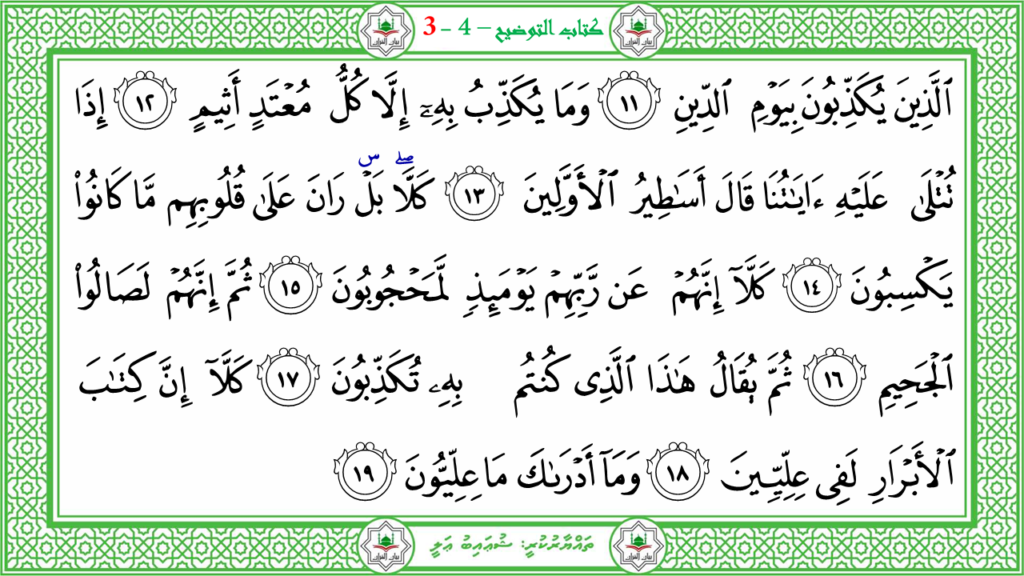 كتاب التوضيح – 4 - 3
ٱلَّذِينَ يُكَذِّبُونَ بِيَوْمِ ٱلدِّينِ ١١ وَمَا يُكَذِّبُ بِهِۦٓ إِلَّا كُلُّ مُعْتَدٍ أَثِيمٍ ١٢ إِذَا
تُتْلَىٰ عَلَيْهِ ءَايَٰتُنَا قَالَ أَسَٰطِيرُ ٱلْأَوَّلِينَ ١٣ كَلَّاۖ بَلْۜ رَانَ عَلَىٰ قُلُوبِهِم مَّا كَانُوا۟
يَكْسِبُونَ ١٤ كَلَّآ إِنَّهُمْ عَن رَّبِّهِمْ يَوْمَئِذٍ لَّمَحْجُوبُونَ ١٥ ثُمَّ إِنَّهُمْ لَصَالُوا۟
ٱلْجَحِيمِ ١٦ ثُمَّ يُقَالُ هَٰذَا ٱلَّذِى كُنتُم بِهِۦ تُكَذِّبُونَ ١٧ كَلَّآ إِنَّ كِتَٰبَ
ٱلْأَبْرَارِ لَفِى عِلِّيِّينَ ١٨ وَمَآ أَدْرَىٰكَ مَا عِلِّيُّونَ ١٩
ތައްޔާރުކުރީ: ޝުޢައިބު ޢަލީ